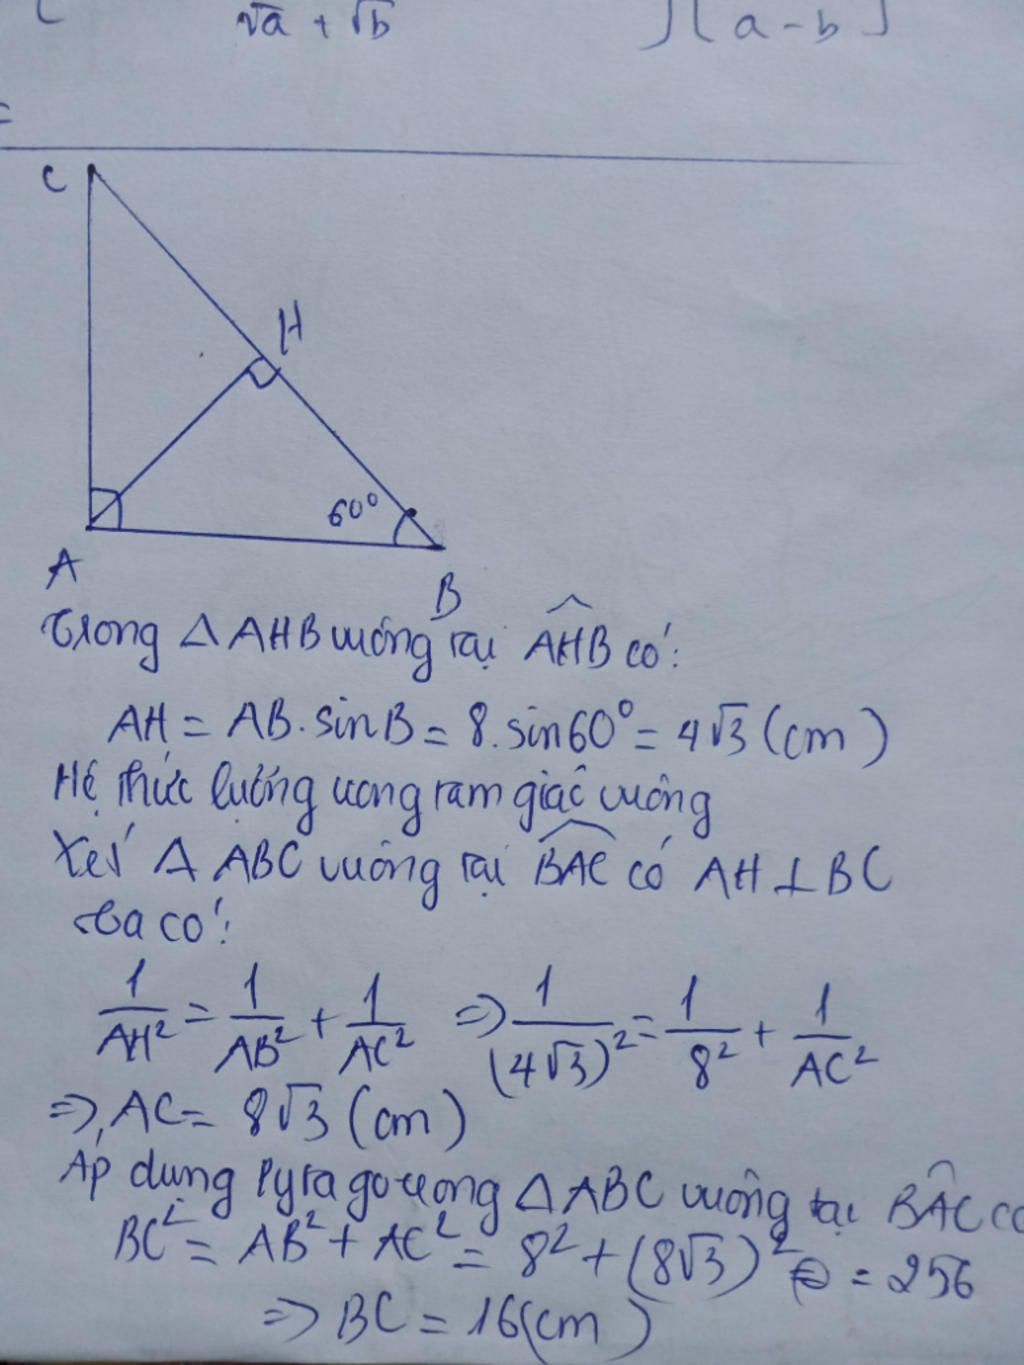 √a + √b ] [ a - b ]
=
C
H
60°
A
B
Trong △ AHB vuông tại AHB có:
AH = AB. sin B = 8. sin 60° = 4√3 (cm)
Hệ thức lượng trong tam giác vuông
Xét △ ABC vuông tại BAC có AH ⊥ BC
ta có:
1/AH² = 1/AB² + 1/AC² => 1/(4√3)² = 1/8² + 1/AC²
=> AC = 8√3 (cm)
Áp dụng Pytago trong △ ABC vuông tại BAC có
BC² = AB² + AC² = 8² + (8√3)² = 256
=> BC = 16(cm)